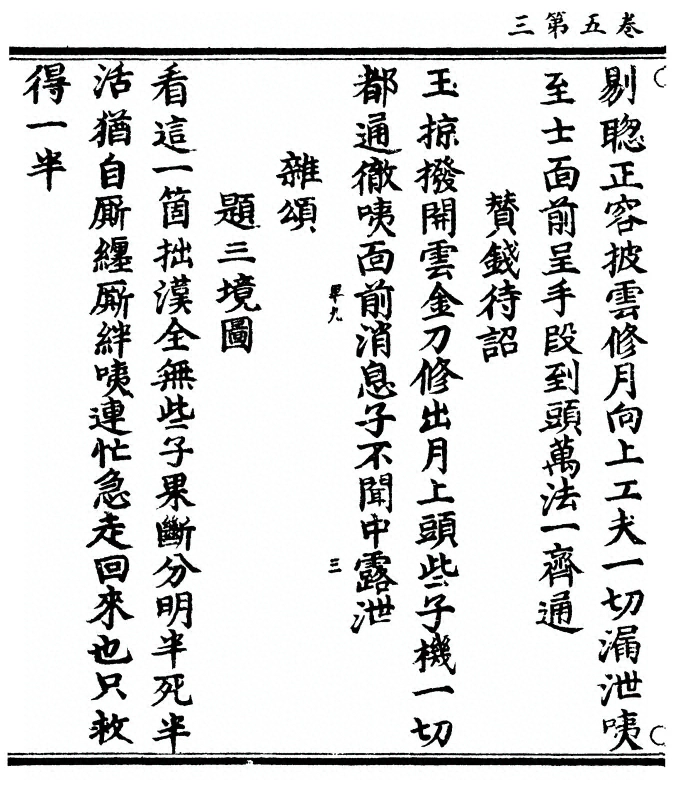 卷五第三
剔聦正容披雲修月向上工夫一切漏泄咦
至士面前呈手段到頭萬法一齊通
賛錢待詔
玉掠撥開雲金刀修出月上頭些子機一切
都通徹咦面前消息子不聞中露泄
畢九
三
雜頌
題三境圖
看這一箇拙漢全無些子果斷分明半死半
活猶自厮纏厮絆咦連忙急走回來也只救
得一半